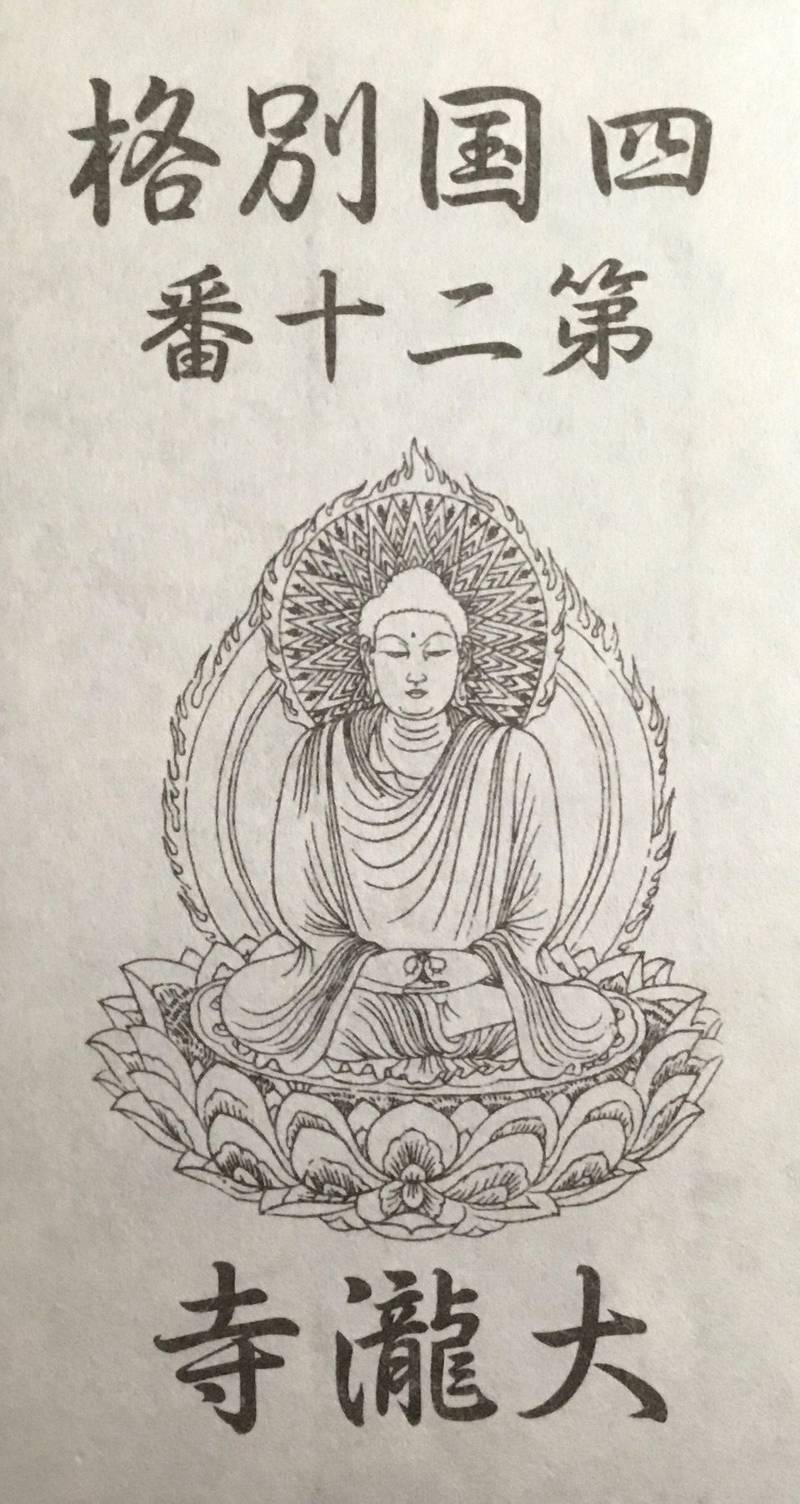 四国別格
第二十番
大瀧寺